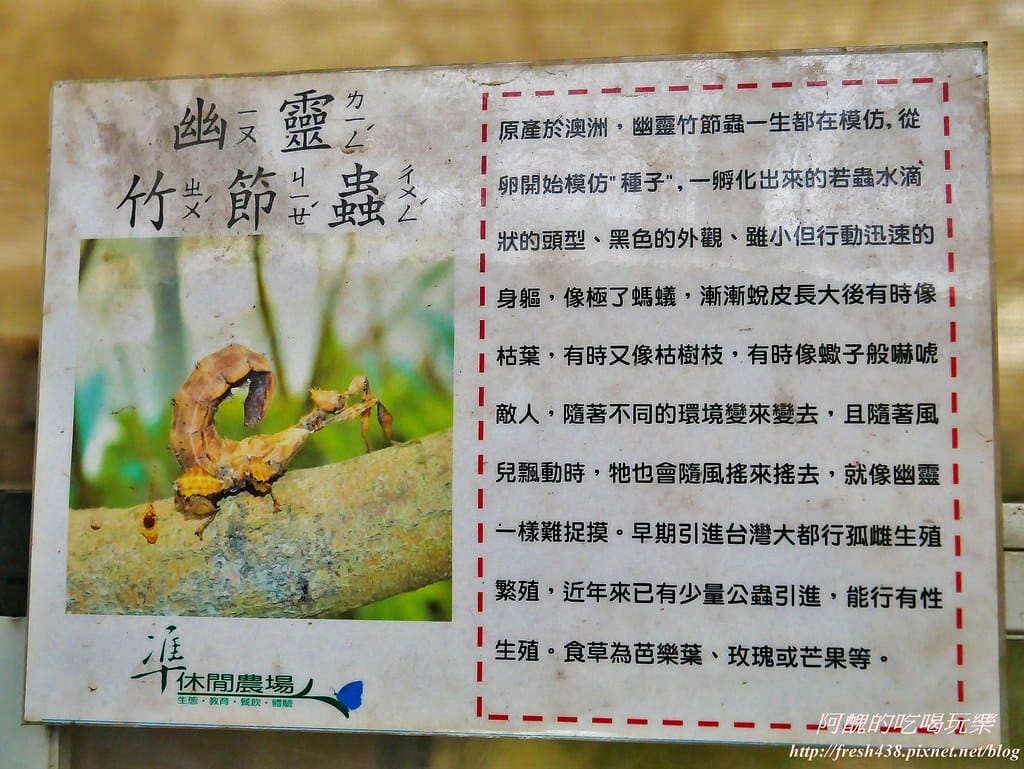 幽靈
ㄧㄡ ㄌㄧㄥˊ
竹節蟲
ㄓㄨˊ ㄐㄧㄝˊ ㄔㄨㄥˊ
原產於澳洲，幽靈竹節蟲一生都在模仿,從
卵開始模仿"種子",一孵化出來的若蟲水滴
狀的頭型、黑色的外觀、雖小但行動迅速的
身軀，像極了螞蟻，漸漸蛻皮長大後有時像
枯葉，有時又像枯樹枝，有時像蠍子般嚇唬
敵人，隨著不同的環境變來變去，且隨著風
兒飄動時，牠也會隨風搖來搖去，就像幽靈
一樣難捉摸。早期引進台灣大都行孤雌生殖
繁殖，近年來已有少量公蟲引進，能行有性
生殖。食草為芭樂葉、玫瑰或芒果等。
準休閒農場
生態・教育・餐飲・體驗
阿醜的吃喝玩樂
http://fresh438.pixnet.net/blog